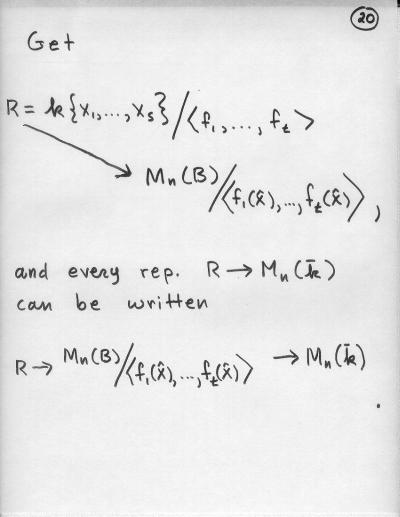 20
Get
R = k{x₁,...,xₛ}/⟨f₁,...,fₜ⟩
Mₙ(B)/⟨f₁(x̂),...,fₜ(x̂)⟩,
and every rep. R → Mₙ(k̄)
can be written
R → Mₙ(B)/⟨f₁(x̂),...,fₜ(x̂)⟩ → Mₙ(k̄)